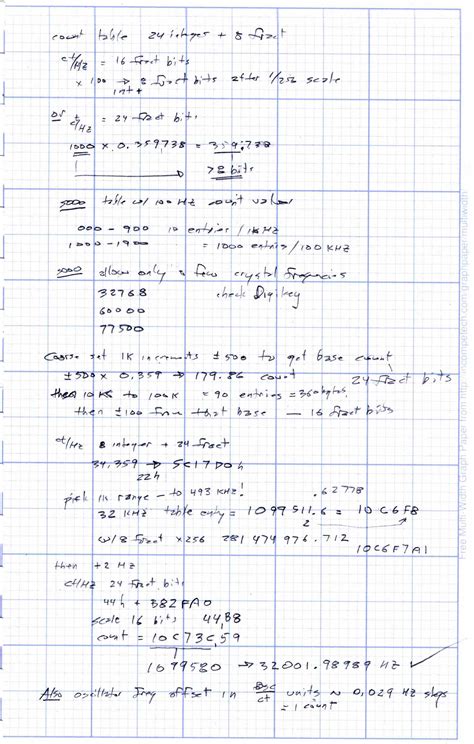 count table 24 integer + 8 fract
ct/Hz = 16 fract bits
x 100 → 8 fract bits after 1/256 scale
int +
or ct/Hz = 24 fract bits
1000 x 0.359738 = 359.738
>8 bits
5000 table w/ 100 Hz count values
000 - 900 10 entries / 1KHZ
1000 - 1900 = 1000 entries / 100 KHZ
5000 allow only a few crystal frequencies
32768 check Digikey
60000
77500
Coarse set 1K increments ±500 to get base count
±500 x 0.359 → 179.86 count 24 fract bits
then 10 KHz to 100K = 90 entries = 360 bytes
then ±100 from that base — 16 fract bits
ct/Hz 8 integer + 24 fract
34.359 → 5C17D0h
22h
pick 1K range - to 493 KHZ!
.62778
32 KHZ table entry = 1099511.6 = 10C6F8
2
w/ 8 fract x256 281 474 976.712
10C6F7A1
then +2 Hz
ct/Hz 24 fract bits
44h + 382FA0
scale 16 bits 44,B8
count = 10C73C,59
1099580 → 32001.98989 HZ ✓
Also oscillator freq offset in osc/ct units ~ 0.029 HZ steps
= 1 count
Free Multi-Width Graph Paper from http://incompetech.com/graphpaper/multiwidth/